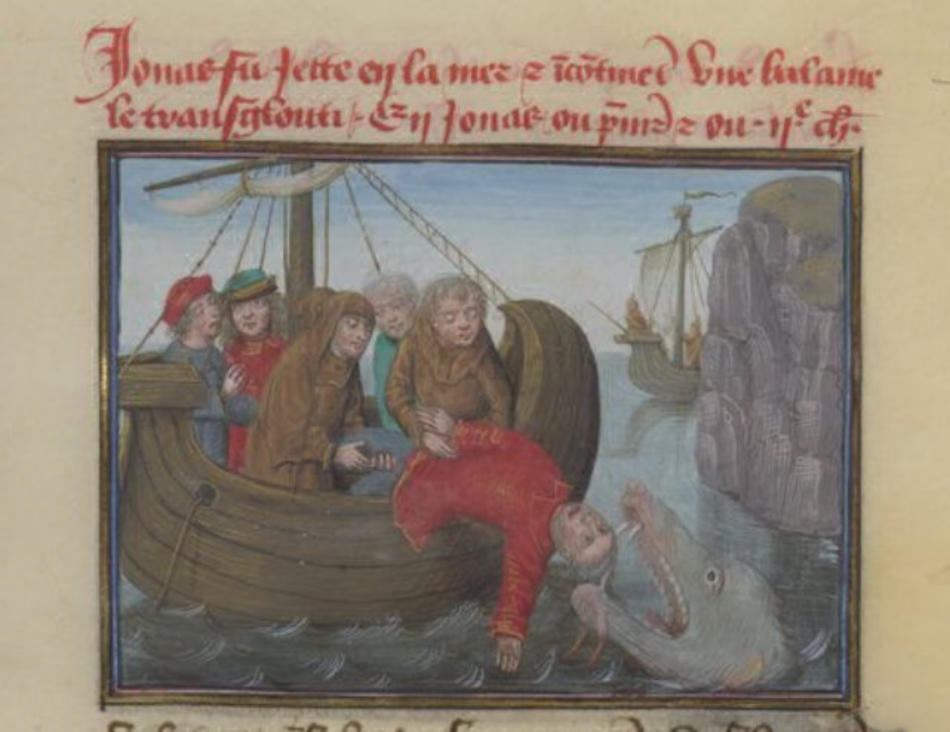 Jonas fu Jette en la mer ⁊ īcōtinēt Vne balaine
le transglouti · En Jonas ou p̄mir̄ ⁊ ou · ijᵉ ch̄r